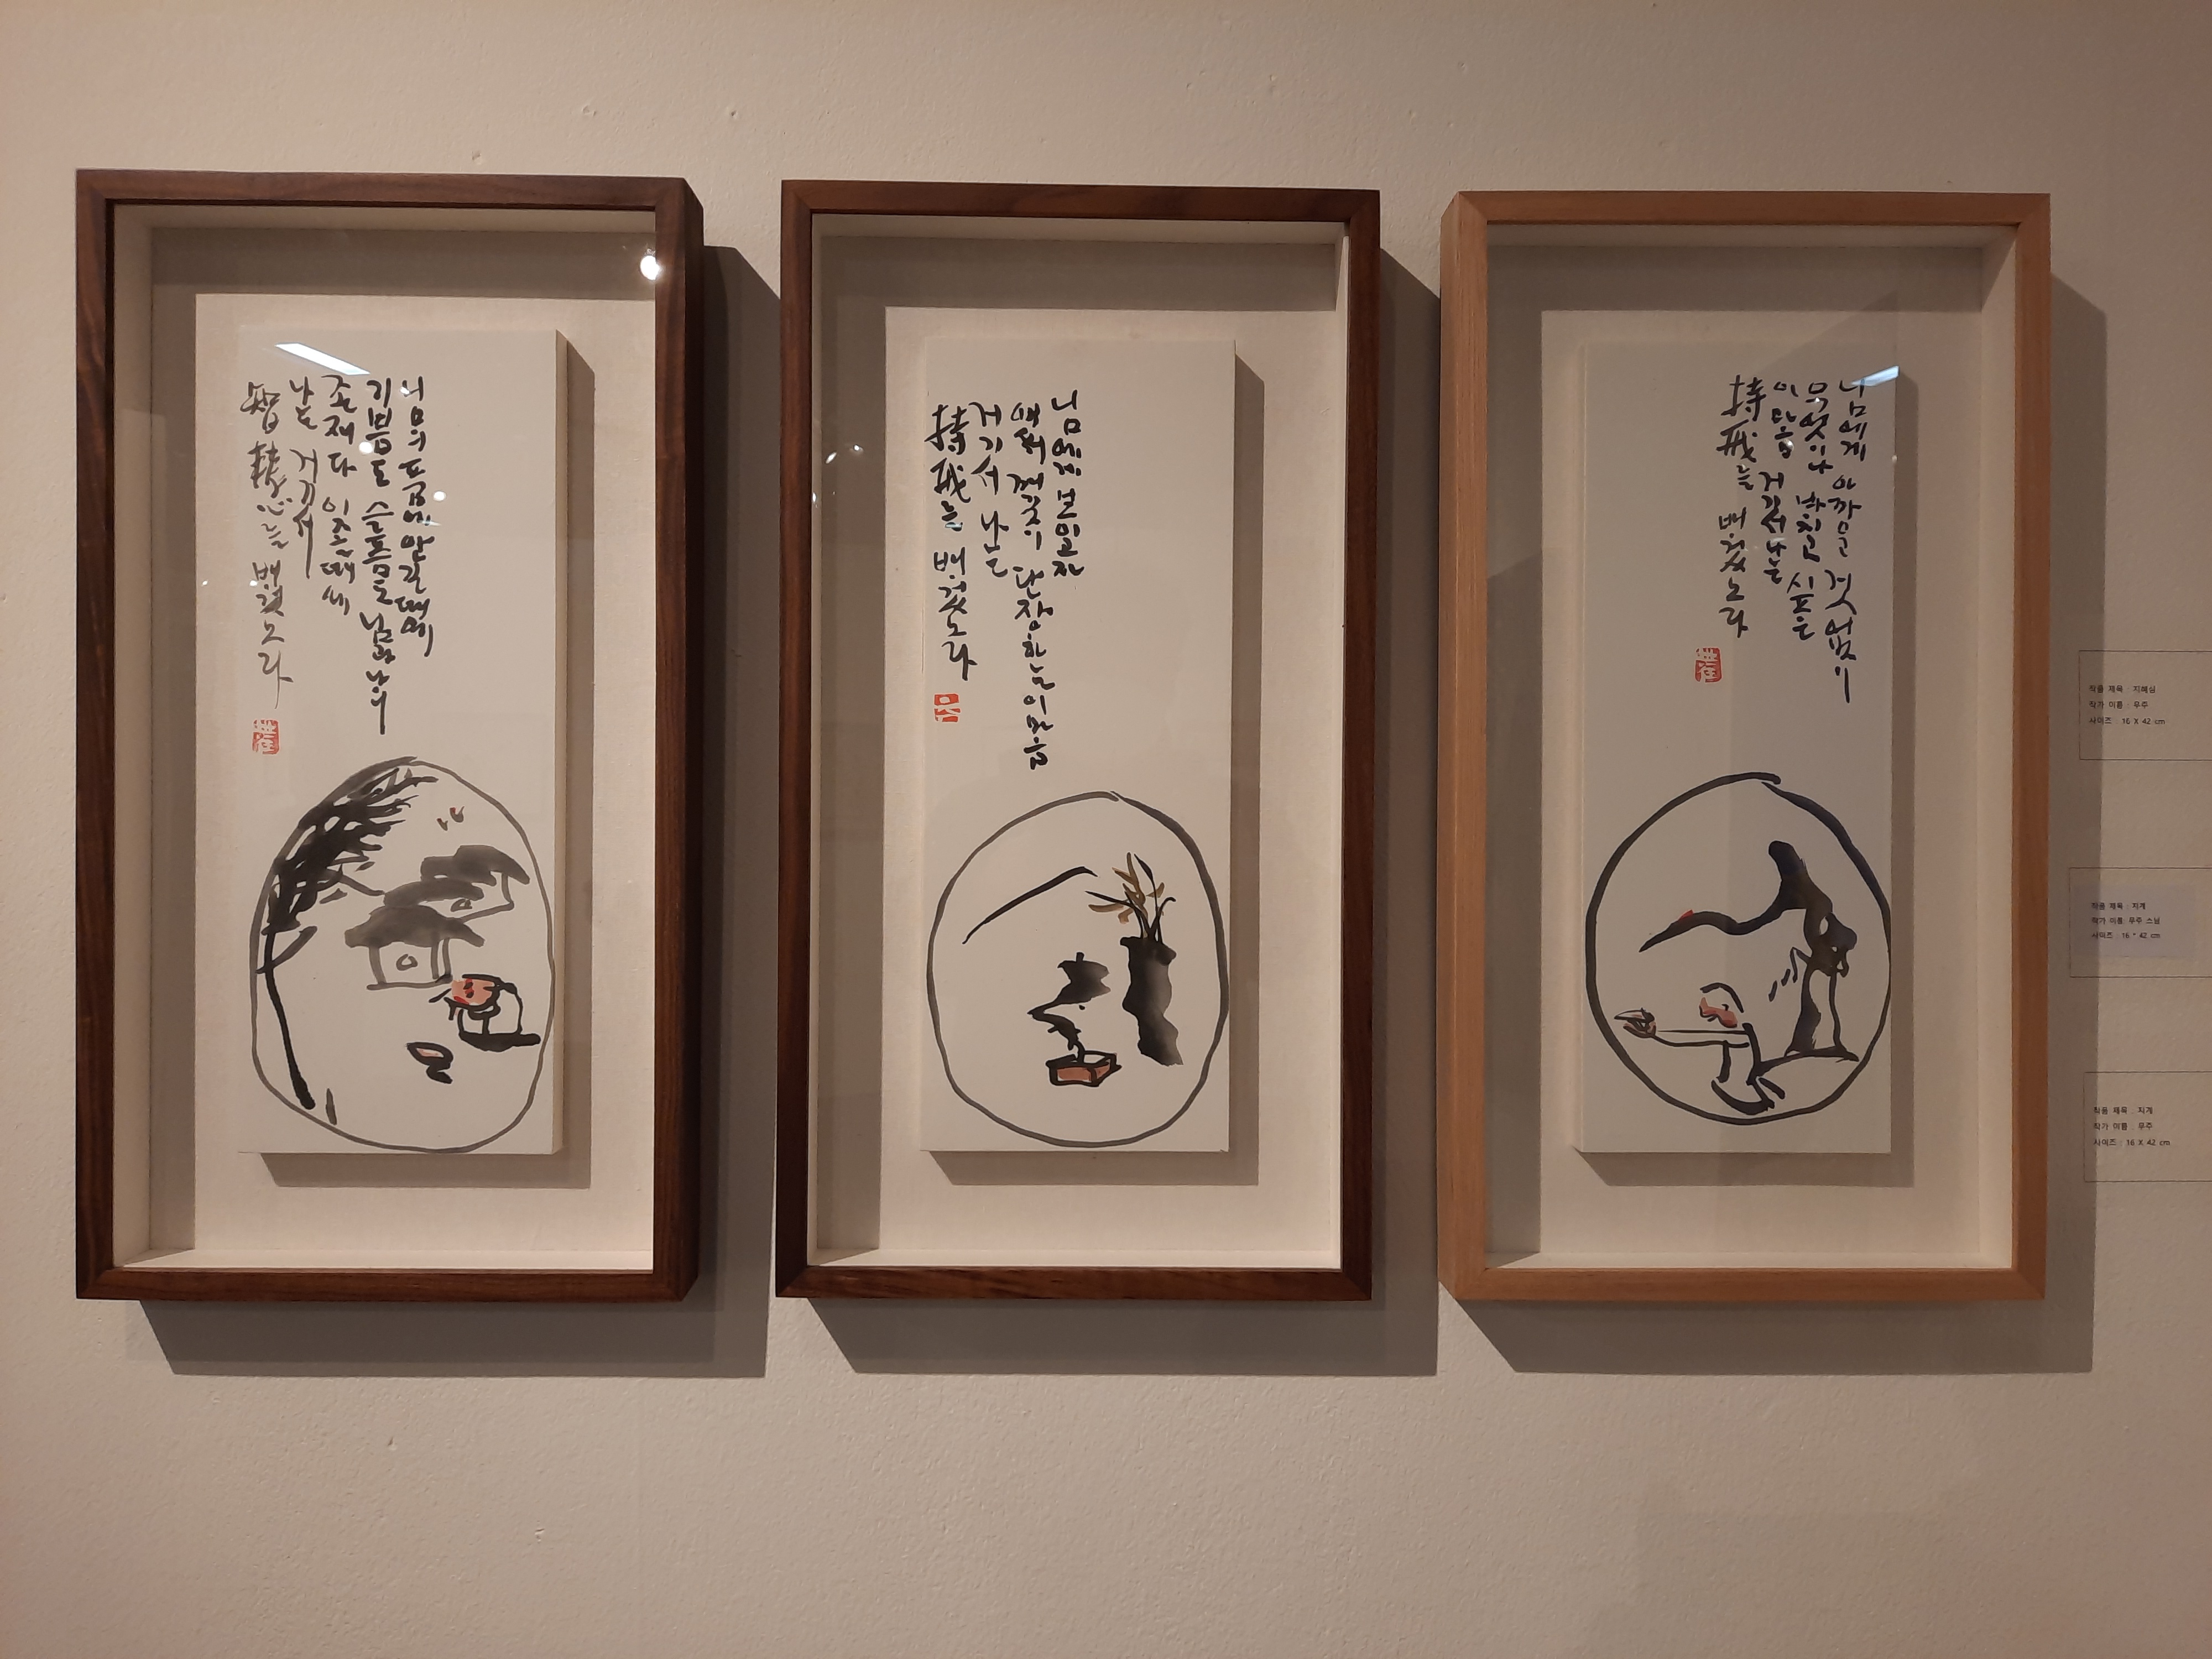 님의 품에 안길 때에
기쁨도 슬픔도 님과 나의
존재다 잊을 때에
나는 거기서
智慧心을 배웠노라
님에게 보이고자
애써 깨끗이 단장하는 이 마음
거기서 나는
持戒를 배웠노라
님에게 아까운 것 없이
무엇이나 바치고 싶은
이 마음 거기서 나는
持戒를 배웠노라
작품 제목 : 지혜심
작가 이름 : 우주
사이즈 : 16 X 42 cm
작품 제목 : 지계
작가 이름 : 우주 스님
사이즈 : 16 * 42 cm
작품 제목 : 지계
작가 이름 : 우주
사이즈 : 16 X 42 cm